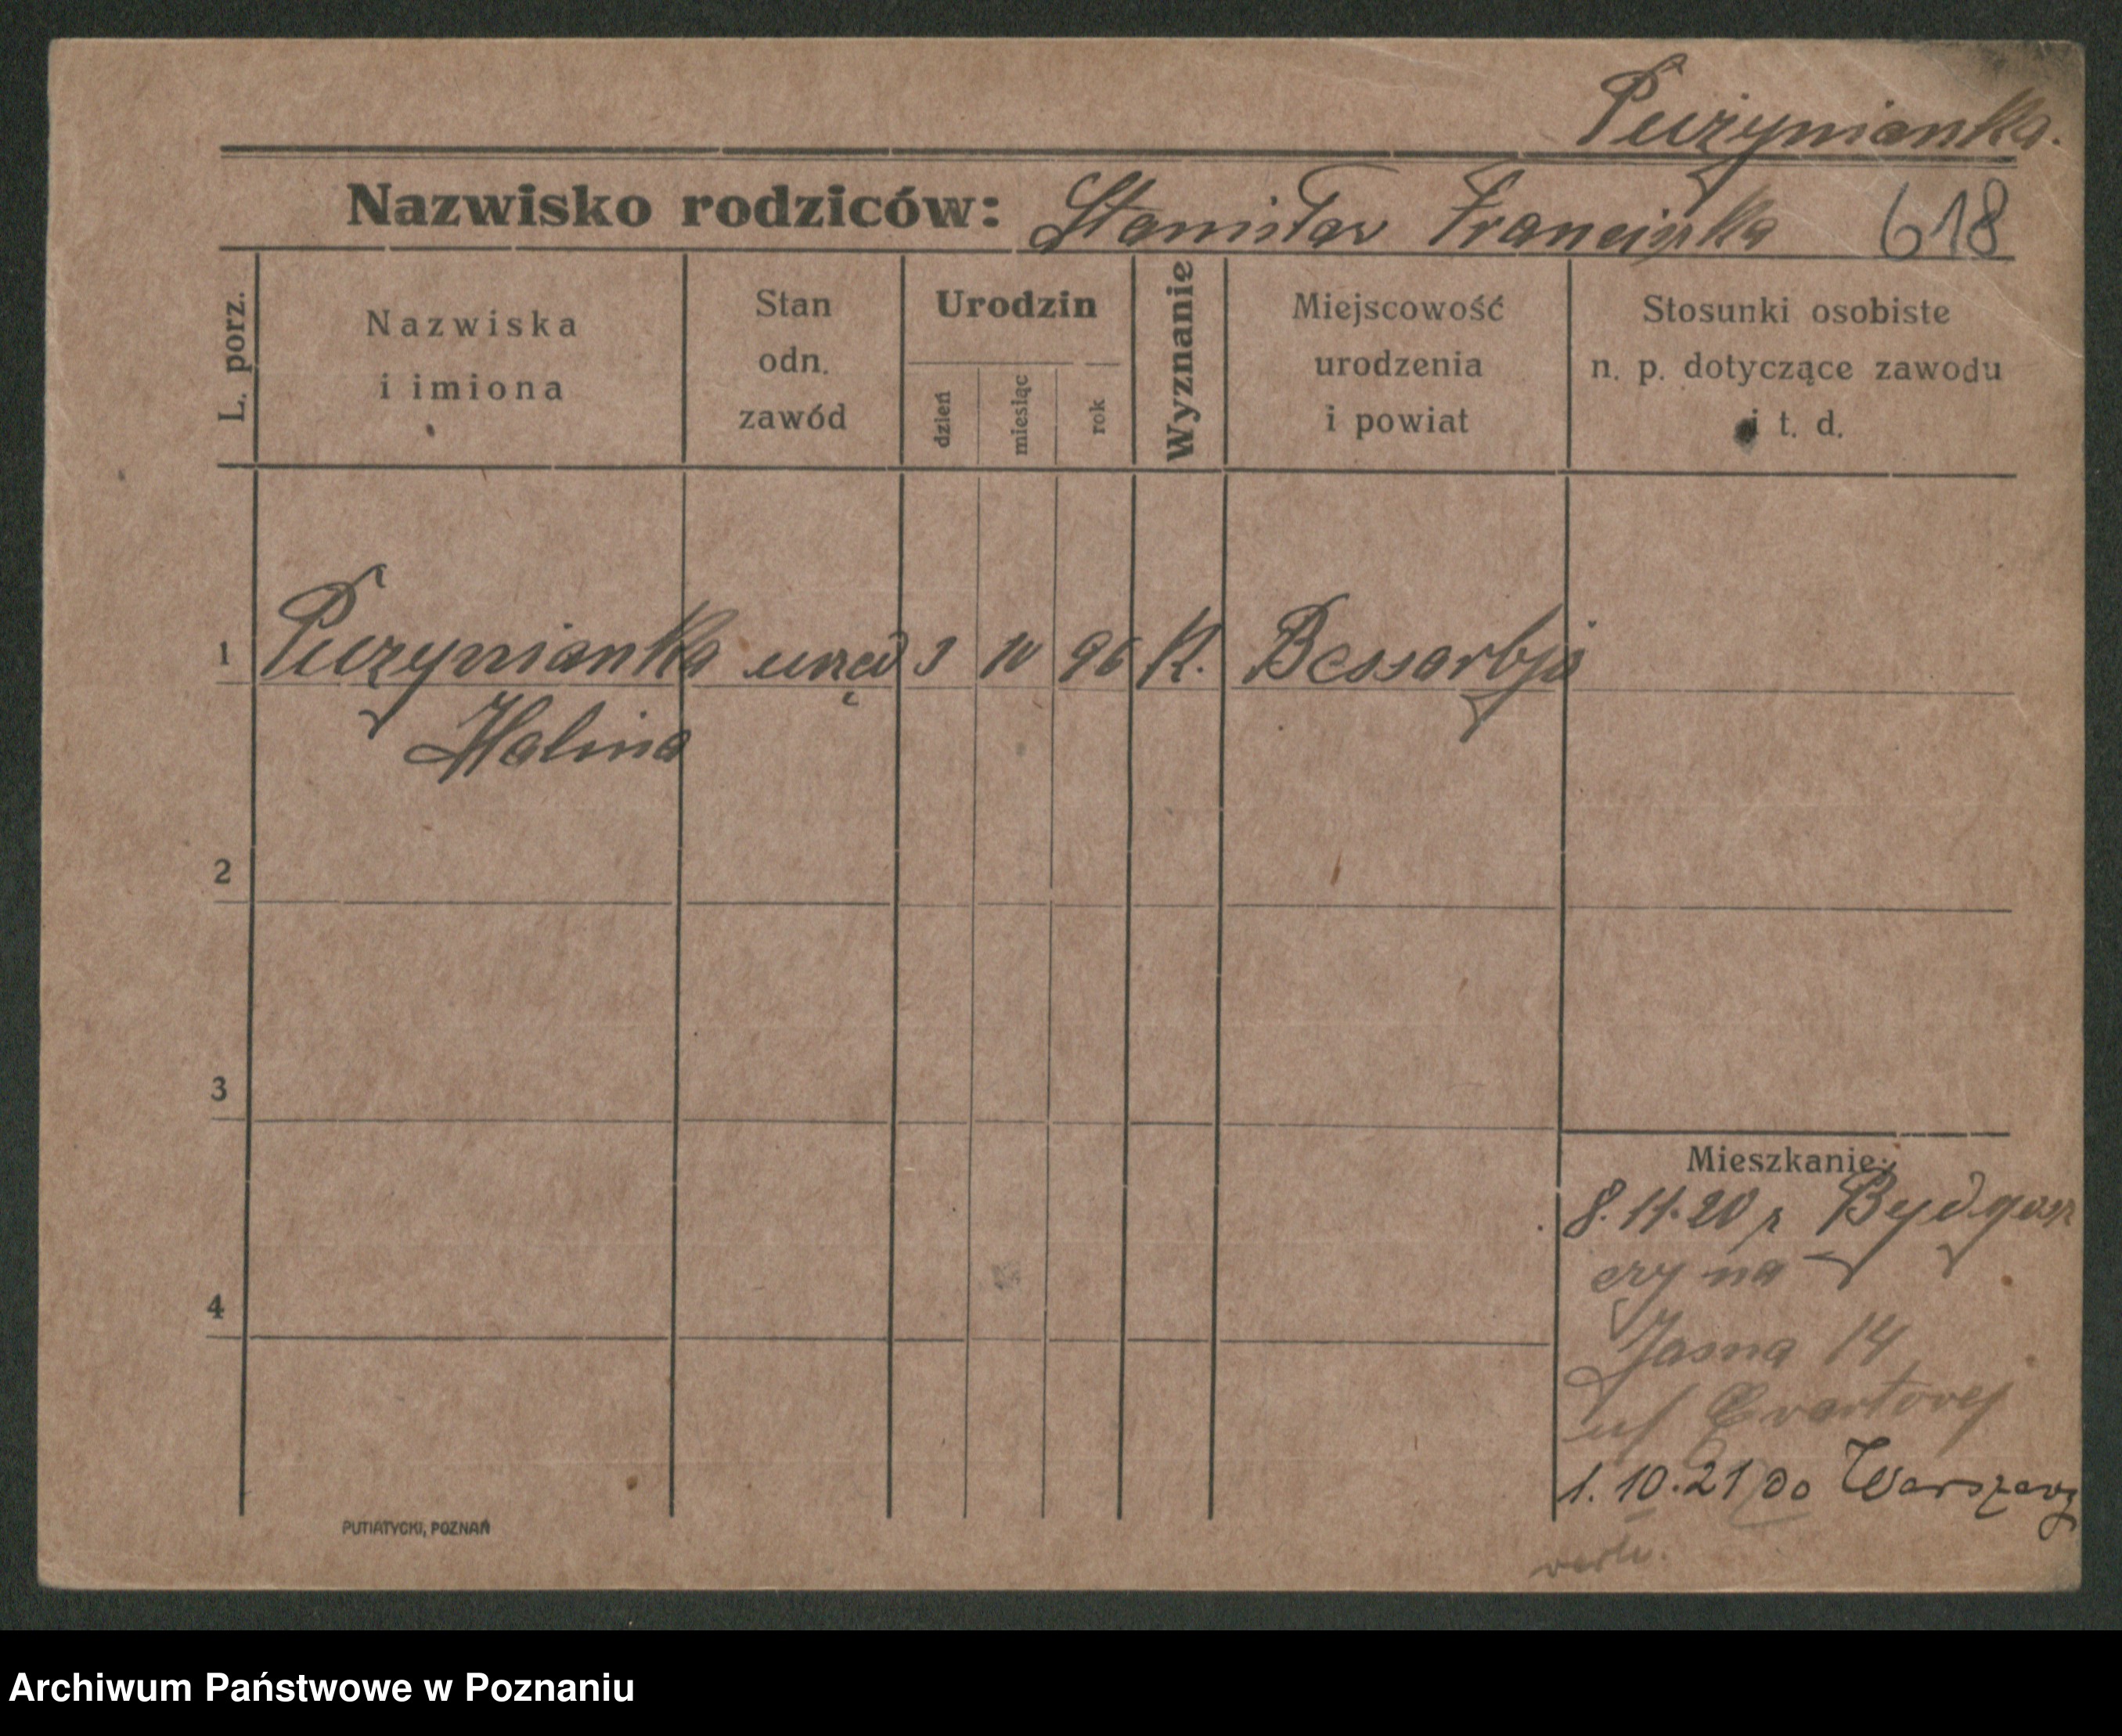 Puzynianka.
Nazwisko rodziców: Stanisław Franciszka 618
L. porz.
Nazwiska
i imiona
Stan
odn.
zawód
Urodzin
dzień
miesiąc
rok
Wyznanie
Miejscowość
urodzenia
i powiat
Stosunki osobiste
n. p. dotyczące zawodu
i t. d.
1 Puzynianka urzęd 3 10 96 K. Bessarbja
Halina
2
3
4
Mieszkanie:
8.11.20 z Bydgosz
czy na
Jasna 14
1.10.21 do Warszawy
PUTIATYCKI, POZNAŃ
Archiwum Państwowe w Poznaniu